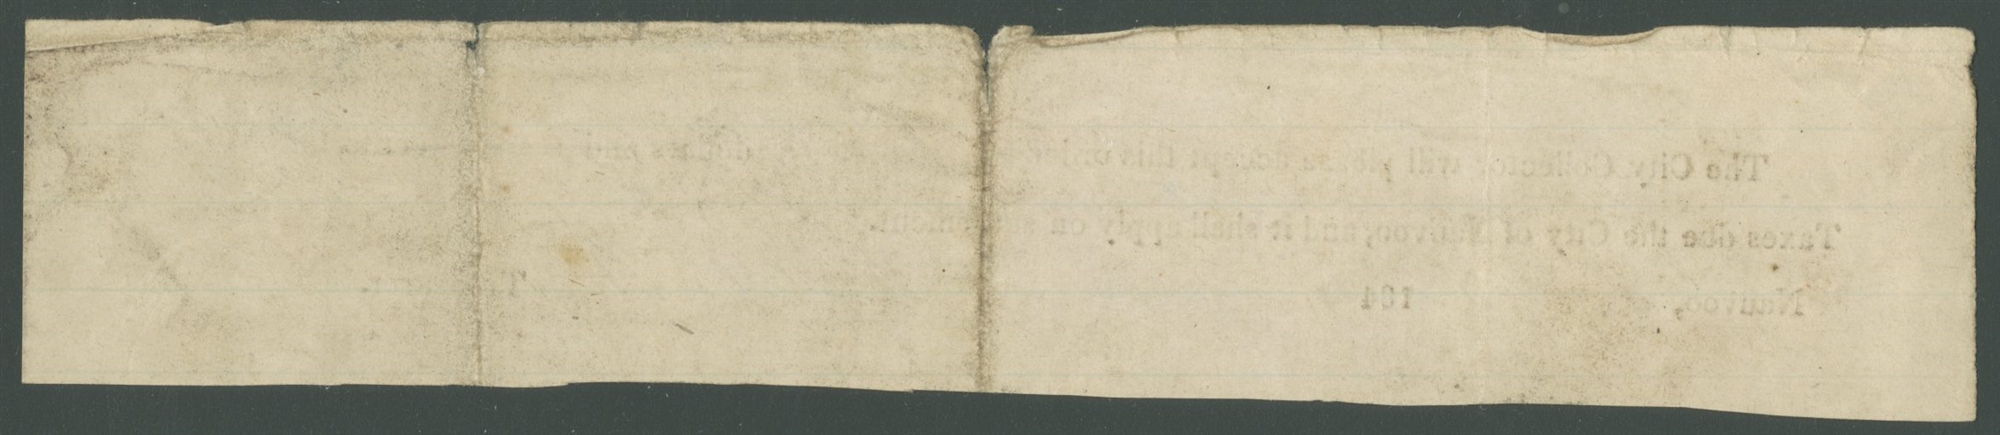 The City Collector will please accept this order dollars and
Taxes due the City of Nauvoo, and it shall apply on settlement.
Nauvoo, 184